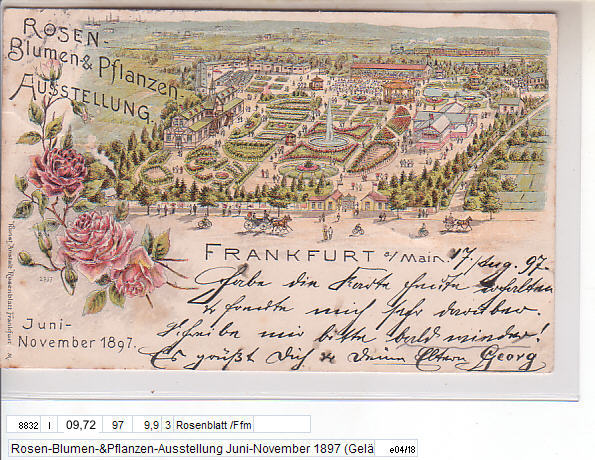 ROSEN-
Blumen & Pflanzen
AUSSTELLUNG.
FRANKFURT a/Main. 17/Aug. 97.
Habe die Karte heute erhalten
& freute mich sehr darüber
Schreibe mir bitte bald wieder!
Es grüßt Dich & Deine Eltern Georg
Juni-
November 1897.
2337
Kunst Anstalt Rosenblatt Frankfurt a. M.
8832 I 09,72 97 9,9 3 Rosenblatt /Ffm
Rosen-Blumen-&Pflanzen-Ausstellung Juni-November 1897 (Gelä e04/18